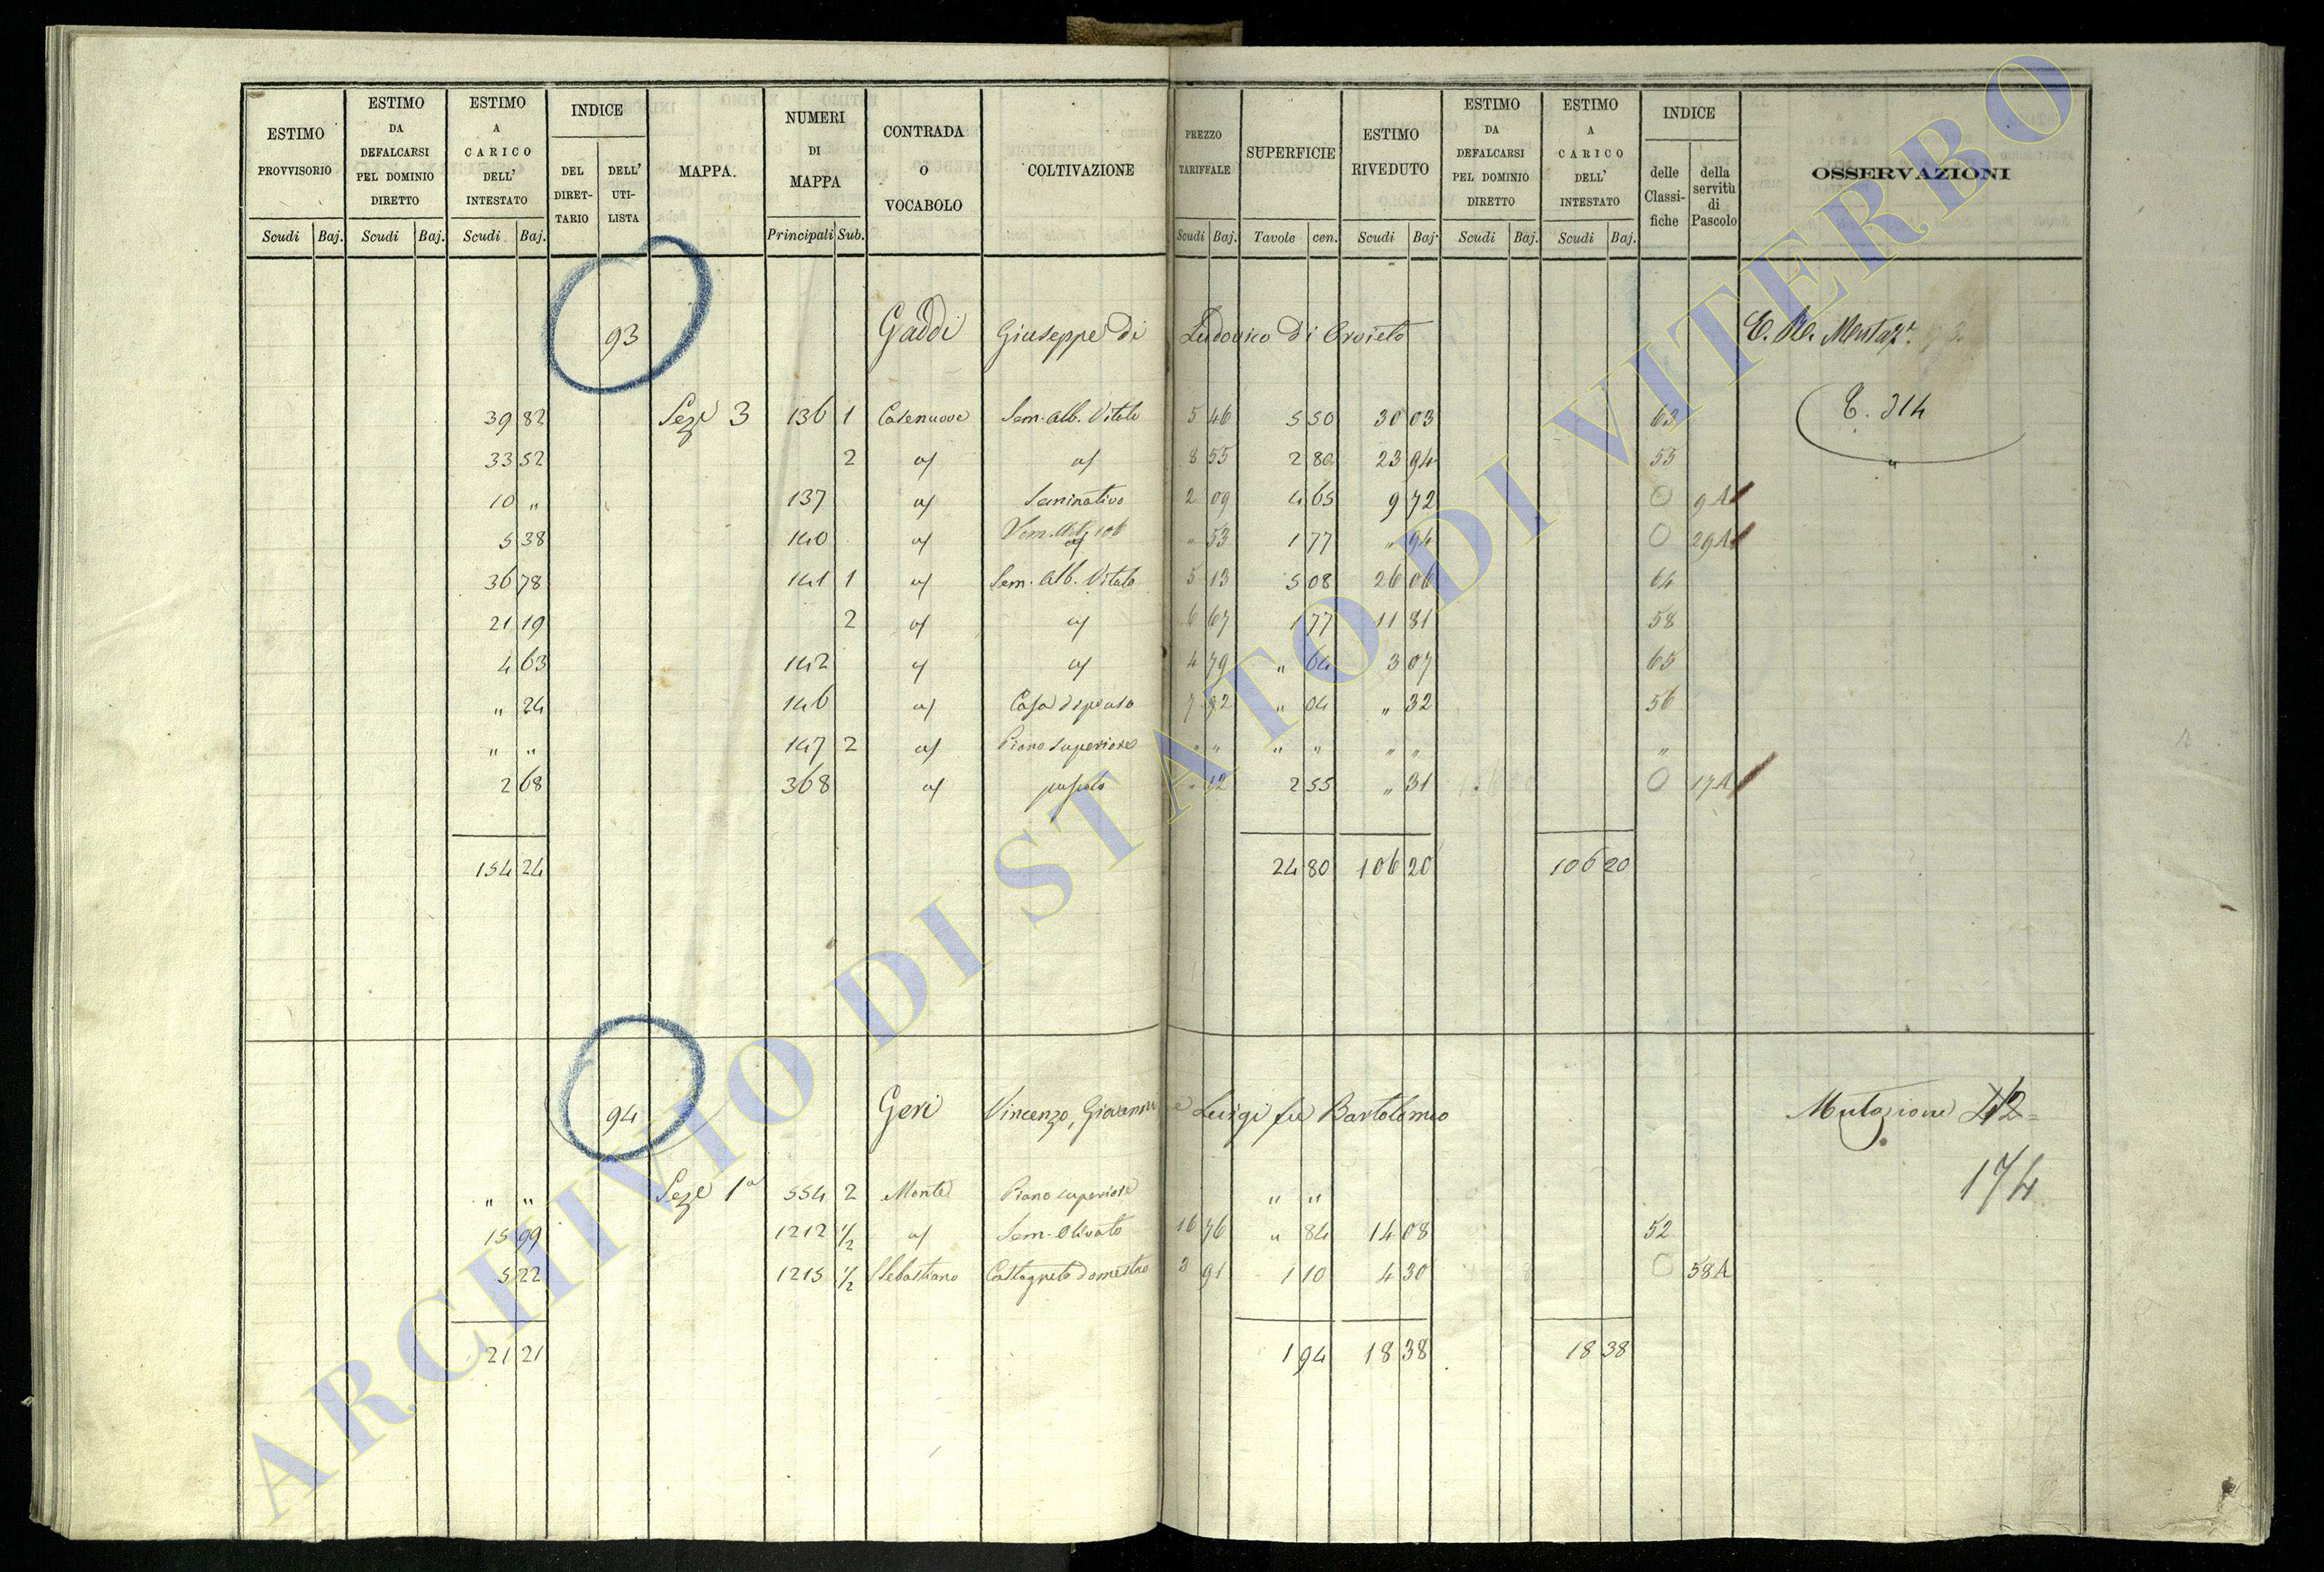 ESTIMO PROVVISORIO Scudi Baj.
ESTIMO DA DEFALCARSI PEL DOMINIO DIRETTO Scudi Baj.
ESTIMO A CARICO DELL' INTESTATO Scudi Baj.
INDICE DEL DIRETTARIO DELL' UTILISTA
MAPPA.
NUMERI DI MAPPA Principali Sub.
CONTRADA O VOCABOLO
COLTIVAZIONE
PREZZO TARIFFALE Scudi Baj.
SUPERFICIE Tavole cen.
ESTIMO RIVEDUTO Scudi Baj.
ESTIMO DA DEFALCARSI PEL DOMINIO DIRETTO Scudi Baj.
ESTIMO A CARICO DELL' INTESTATO Scudi Baj.
INDICE delle Classifiche della servitù di Pascolo
OSSERVAZIONI
93 Gaddi Giuseppe di Ludovico di Orvieto
39 82 Seze 3 136 1 Casenuove Sem. Alb. Vitato 5 46 5 50 30 03 63 314
33 52 2 a/ a/ 8 55 2 80 23 94 55 "
10 " 137 a/ Seminativo 2 09 4 65 9 72 0 9A
5 38 140 a/ " 53 1 77 " 94 0 29A
36 78 141 1 a/ Sem. Alb. Vitato 5 13 5 08 26 06 64
21 19 2 a/ a/ 6 67 1 77 11 81 58
4 63 142 a/ a/ 4 79 " 64 3 07 65
" 24 146 a/ Casa 7 92 " 04 " 32 56
" " 147 2 a/ Piano superiore " " " " " " "
2 68 368 a/ pascolo " 12 2 55 " 31 0 17A
154 24 24 80 106 20 106 20
94 Geri Vincenzo, Giovanni e Luigi fu Bartolomeo Mutazione 42
174
" " Seze 1a 554 2 Monte Piano superiore " "
15 99 1212 1/2 a/ Sem. Olivato 16 76 " 84 14 08 52
5 22 1215 1/2 S Sebastiano Castagneto domestico 3 91 1 10 4 30 0 58A
21 21 1 94 18 38 18 38
ARCHIVIO DI STATO DI VITERBO